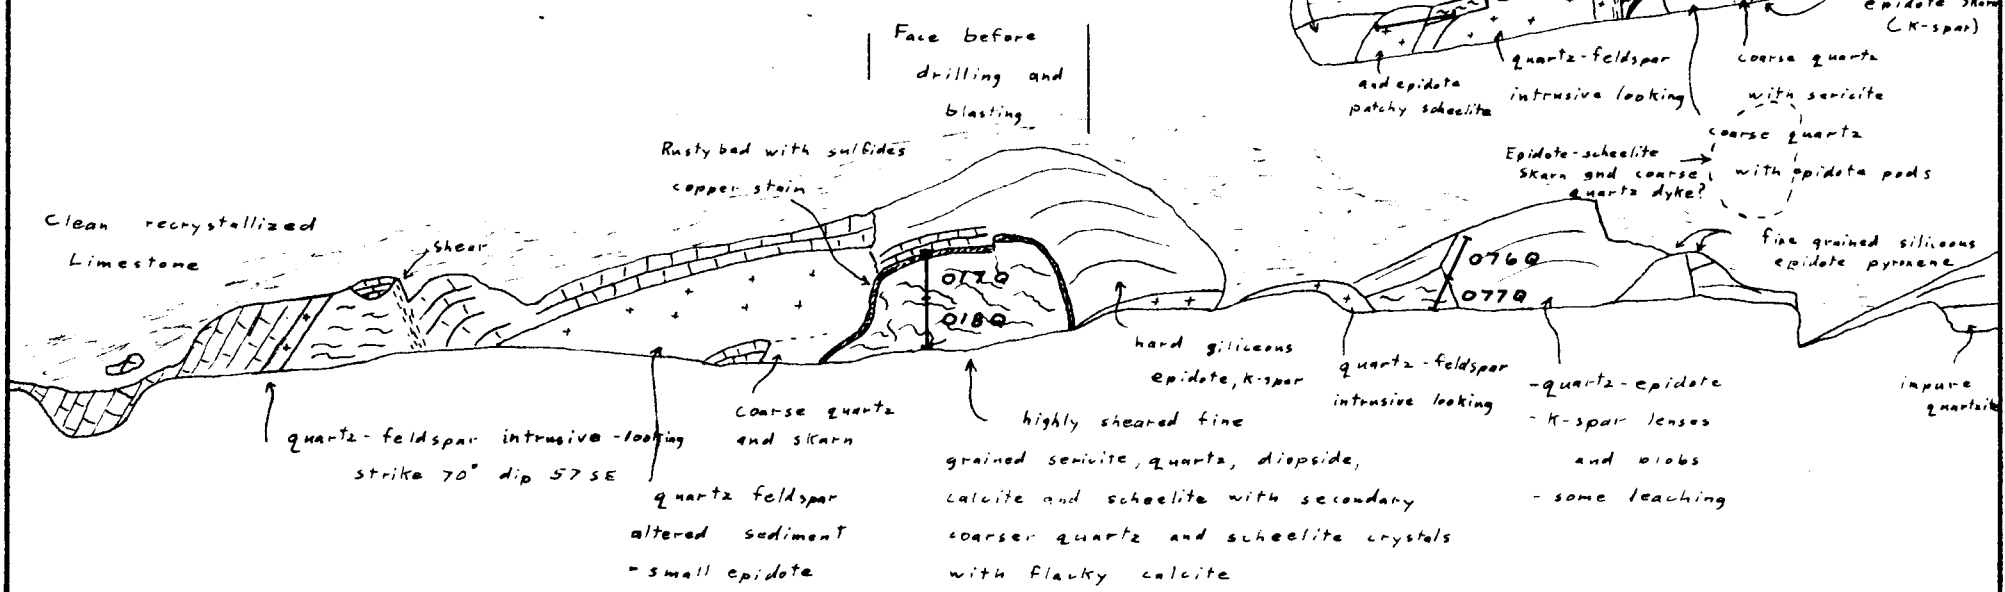 Face before
drilling and
blasting
epidote skarn
(K-spar)
and epidote
patchy scheelite
quartz-feldspar
intrusive looking
coarse quartz
with sericite
coarse quartz
with epidote pods
Epidote-scheelite
Skarn and coarse
quartz dyke?
fine grained siliceous
epidote pyroxene
Rusty bed with sulfides
copper stain
Clean recrystallized
Limestone
shear
017Q
018Q
076Q
077Q
hard siliceous
epidote, K-spar
quartz-feldspar
intrusive looking
-quartz-epidote
- K-spar lenses
and blobs
- some leaching
impure
quartzite
quartz-feldspar intrusive-looking
strike 70° dip 57 SE
coarse quartz
and skarn
quartz feldspar
altered sediment
- small epidote
highly sheared fine
grained sericite, quartz, diopside,
calcite and scheelite with secondary
coarser quartz and scheelite crystals
with flacky calcite